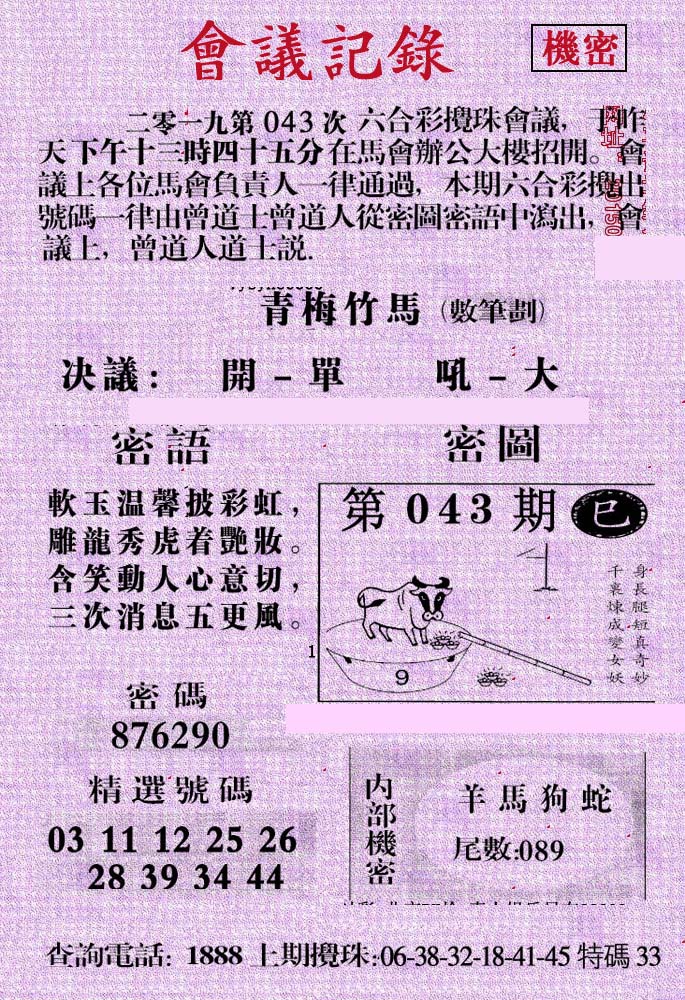 會議記錄
機密
二零一九第043次 六合彩攪珠會議, 于昨
天下午十三時四十五分在馬會辦公大樓招開。會
議上各位馬會負責人一律通過, 本期六合彩攪出
號碼一律由曾道士曾道人從密圖密語中瀉出, 會
議上, 曾道人道士説.
青梅竹馬 (數筆劃)
决議: 開-單 吼-大
密語
軟玉温馨披彩虹,
雕龍秀虎着艷妝。
含笑動人心意切,
三次消息五更風。
密圖
第043期 巳
身長腿短真奇妙
千裏煉成變女妖
1
9
密碼
876290
精選號碼
03 11 12 25 26
28 39 34 44
内部機密
羊馬狗蛇
尾數:089
查詢電話: 1888 上期攪珠:06-38-32-18-41-45 特碼 33